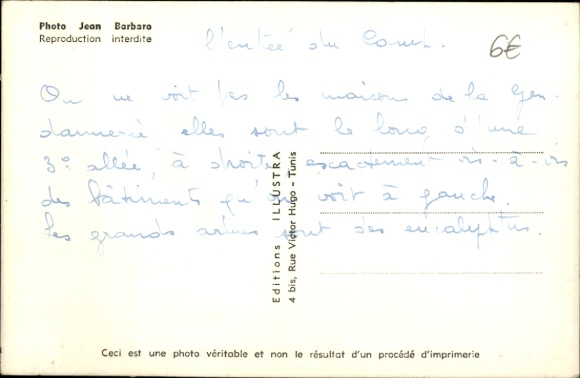 Photo Jean Barbaro
Reproduction interdite
l'entée du Camp.
6€
On ne voit pas les maisons de la gen-
darmerie elles sont le long d'une
3º allée, à droite, exactement vis-à-vis
des bâtiments qu'on voit à gauche.
Les grands arbres sont des eucalyptus.
Editions ILLUSTRA
4 bis, Rue Victor Hugo - Tunis
Ceci est une photo véritable et non le résultat d'un procédé d'imprimerie